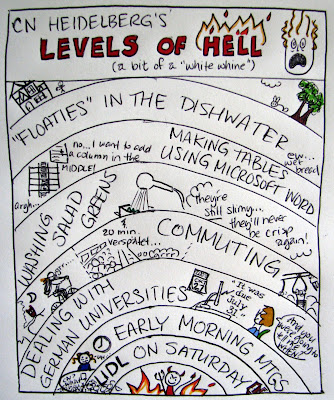 CN HEIDELBERG'S
LEVELS OF HELL
(a bit of a "white whine")
"FLOATIES" IN THE DISHWATER
ew...
wet
bread
MAKING TABLES
USING MICROSOFT WORD
no... I want to add
a column in the
MIDDLE!
argh...
WASHING
SALAD
GREENS
They're
still slimy...
they'll never
be crisp
again!
20 min
verspätet...
COMMUTING
DEALING WITH
GERMAN UNIVERSITIES
"It was
due
July
31."
27
And you
were going
to tell me
WHEN?
EARLY MORNING MTGS
LIDL ON SATURDAY